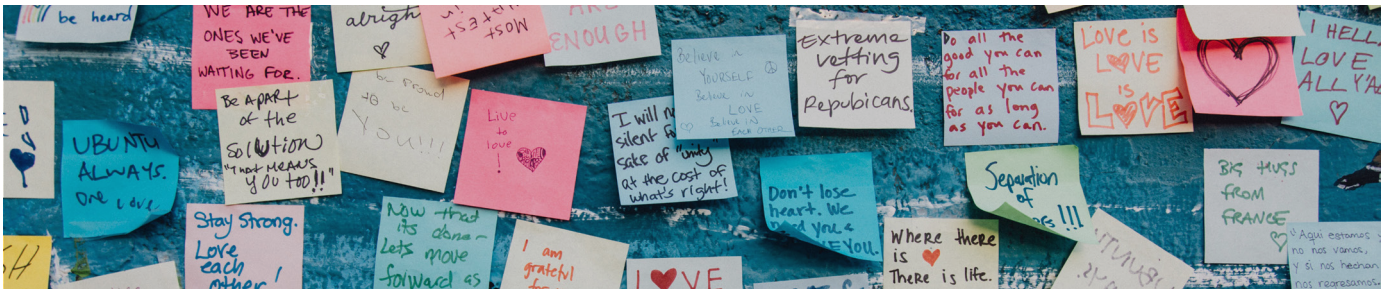 be heard
WE ARE THE
ONES WE'VE
BEEN
WAITING FOR.
alright
MOST
ARE
ENOUGH
Believe in
YOURSELF
Believe in
LOVE
Believe in
EACH OTHER
Extreme
vetting
for
Repubicans.
Do all the
good you can
for all the
people you can
for as long
as you can.
LOVE is
LOVE
is
LOVE
I HELLA
LOVE
ALL Y'ALL
Be APart
of the
Solution
"that MEANS
you too!!"
be proud
to be
You!!!
Live
to
love
!
I will
silent
sake of "unity"
at the cost of
what's right!
UBUNTU
ALWAYS.
One Love.
Don't lose
heart. We
need you &
LOVE YOU.
Separation
of
!!!
BIG HUGS
FROM
FRANCE
Stay Strong.
Love
each
other!
Now that
its done-
Lets move
forward as
I am
grateful
for
LOVE
Where there
is
There is life.
"Aqui estamos y
no nos vamos,
y si nos hechan
nos regresamos.